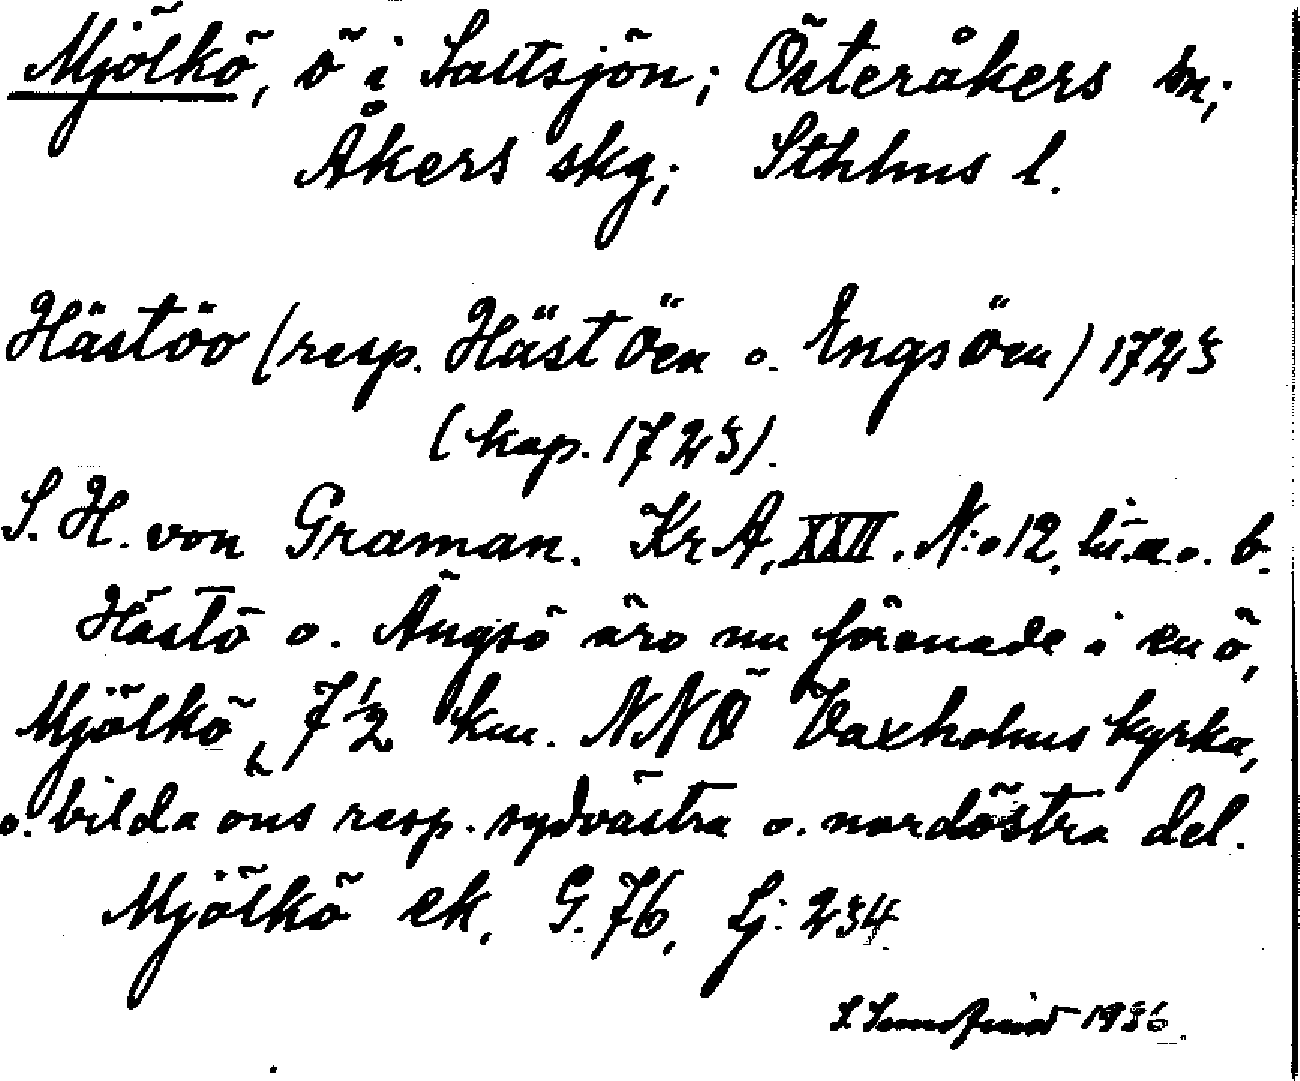 Mjölkö, ö i Saltsjön; Österåkers sn;
Åkers skg; Sthlms l.
Hästöo (resp. Häst Öen o. Engs Öen) 1723
(kop. 1723).
S. H. von Graman. Kr A, XXII. N:o 12, lit. a o. b.
Hästö o. Ängsö äro nu förenade i en ö,
Mjölkö, 7 1/2 km. NNÖ Vaxholms kyrka,
o. bilda öns resp. sydvästra o. nordöstra del.
Mjölkö ek. G. 76, Lj: 234
1936.